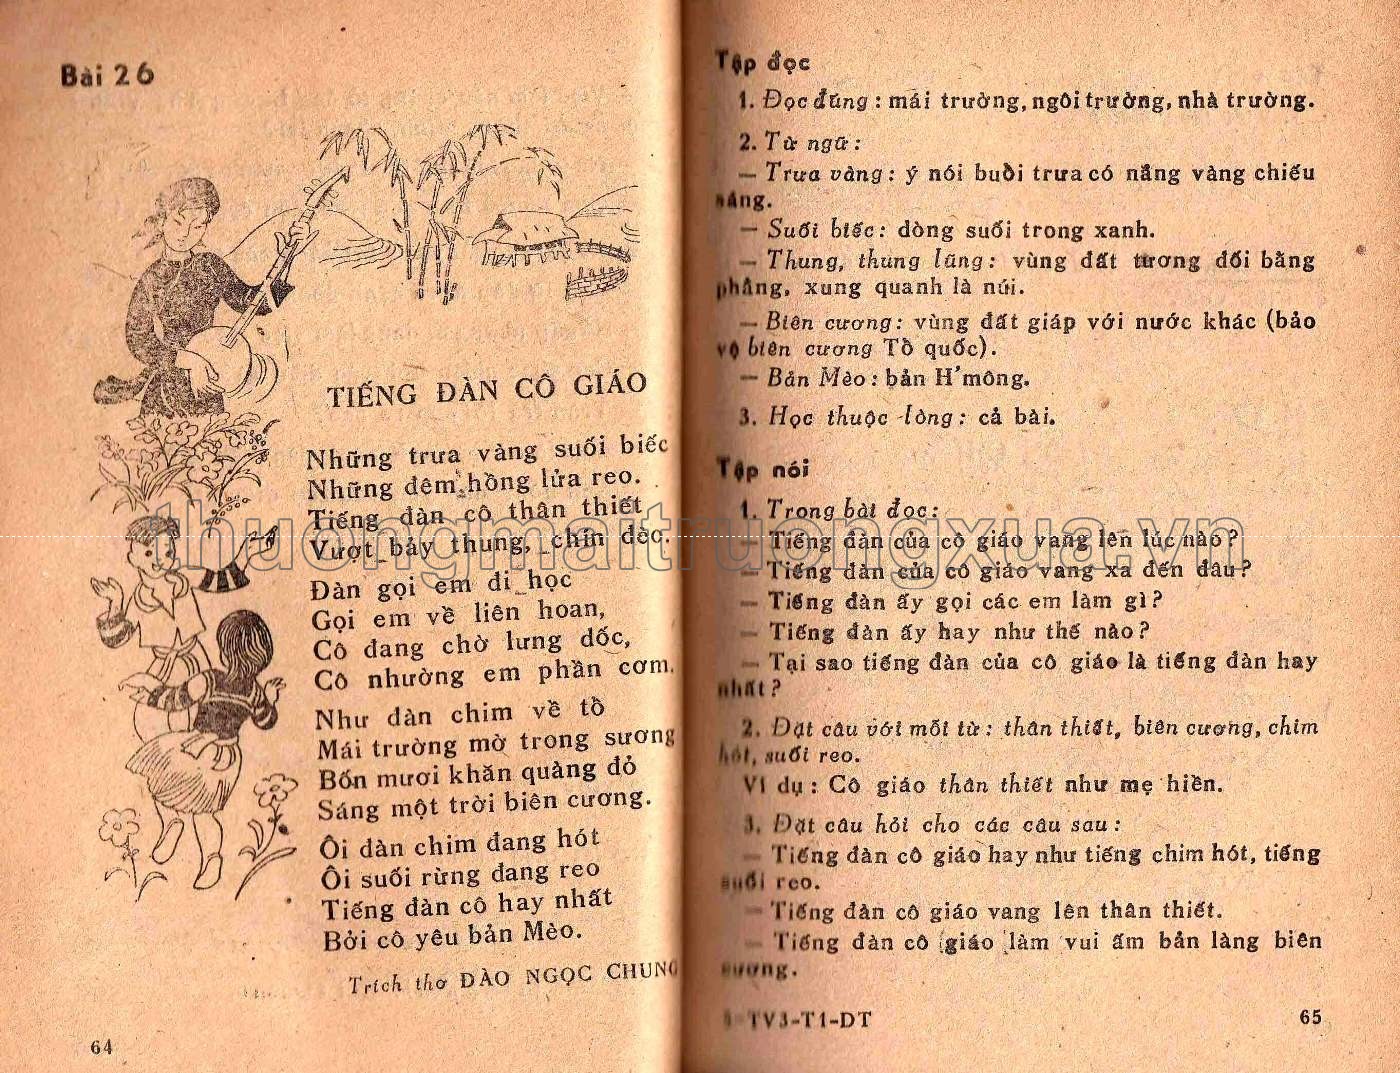 Bài 26
TIẾNG ĐÀN CÔ GIÁO
Những trưa vàng suối biếc
Những đêm hồng lửa reo.
Tiếng đàn cô thân thiết
Vượt bảy thung, chín đèo.
Đàn gọi em đi học
Gọi em về liên hoan,
Cô đang chờ lưng dốc,
Cô nhường em phần cơm.
Như đàn chim về tổ
Mái trường mờ trong sương
Bốn mươi khăn quàng đỏ
Sáng một trời biên cương.
Ôi dàn chim đang hót
Ôi suối rừng đang reo
Tiếng đàn cô hay nhất
Bởi cô yêu bản Mèo.
Trích thơ ĐÀO NGỌC CHUNG
64
Tập đọc
1. Đọc đúng : mái trường, ngôi trường, nhà trường.
2. Từ ngữ :
— Trưa vàng : ý nói buổi trưa có nắng vàng chiếu
sáng.
— Suối biếc : dòng suối trong xanh.
— Thung, thung lũng : vùng đất tương đối bằng
phẳng, xung quanh là núi.
— Biên cương : vùng đất giáp với nước khác (bảo
vệ biên cương Tổ quốc).
— Bản Mèo : bản H'mông.
3. Học thuộc lòng : cả bài.
Tập nói
1. Trong bài đọc :
— Tiếng đàn của cô giáo vang lên lúc nào ?
— Tiếng đàn của cô giáo vang xa đến đâu ?
— Tiếng đàn ấy gọi các em làm gì ?
— Tiếng đàn ấy hay như thế nào ?
— Tại sao tiếng đàn của cô giáo là tiếng đàn hay
nhất ?
2. Đặt câu với mỗi từ : thân thiết, biên cương, chim
hót, suối reo.
Ví dụ : Cô giáo thân thiết như mẹ hiền.
3. Đặt câu hỏi cho các câu sau :
— Tiếng đàn cô giáo hay như tiếng chim hót, tiếng
suối reo.
— Tiếng đàn cô giáo vang lên thân thiết.
— Tiếng đàn cô giáo làm vui ấm bản làng biên
cương.
TV3-T1-DT
65
thuongmaitruongxua.vn